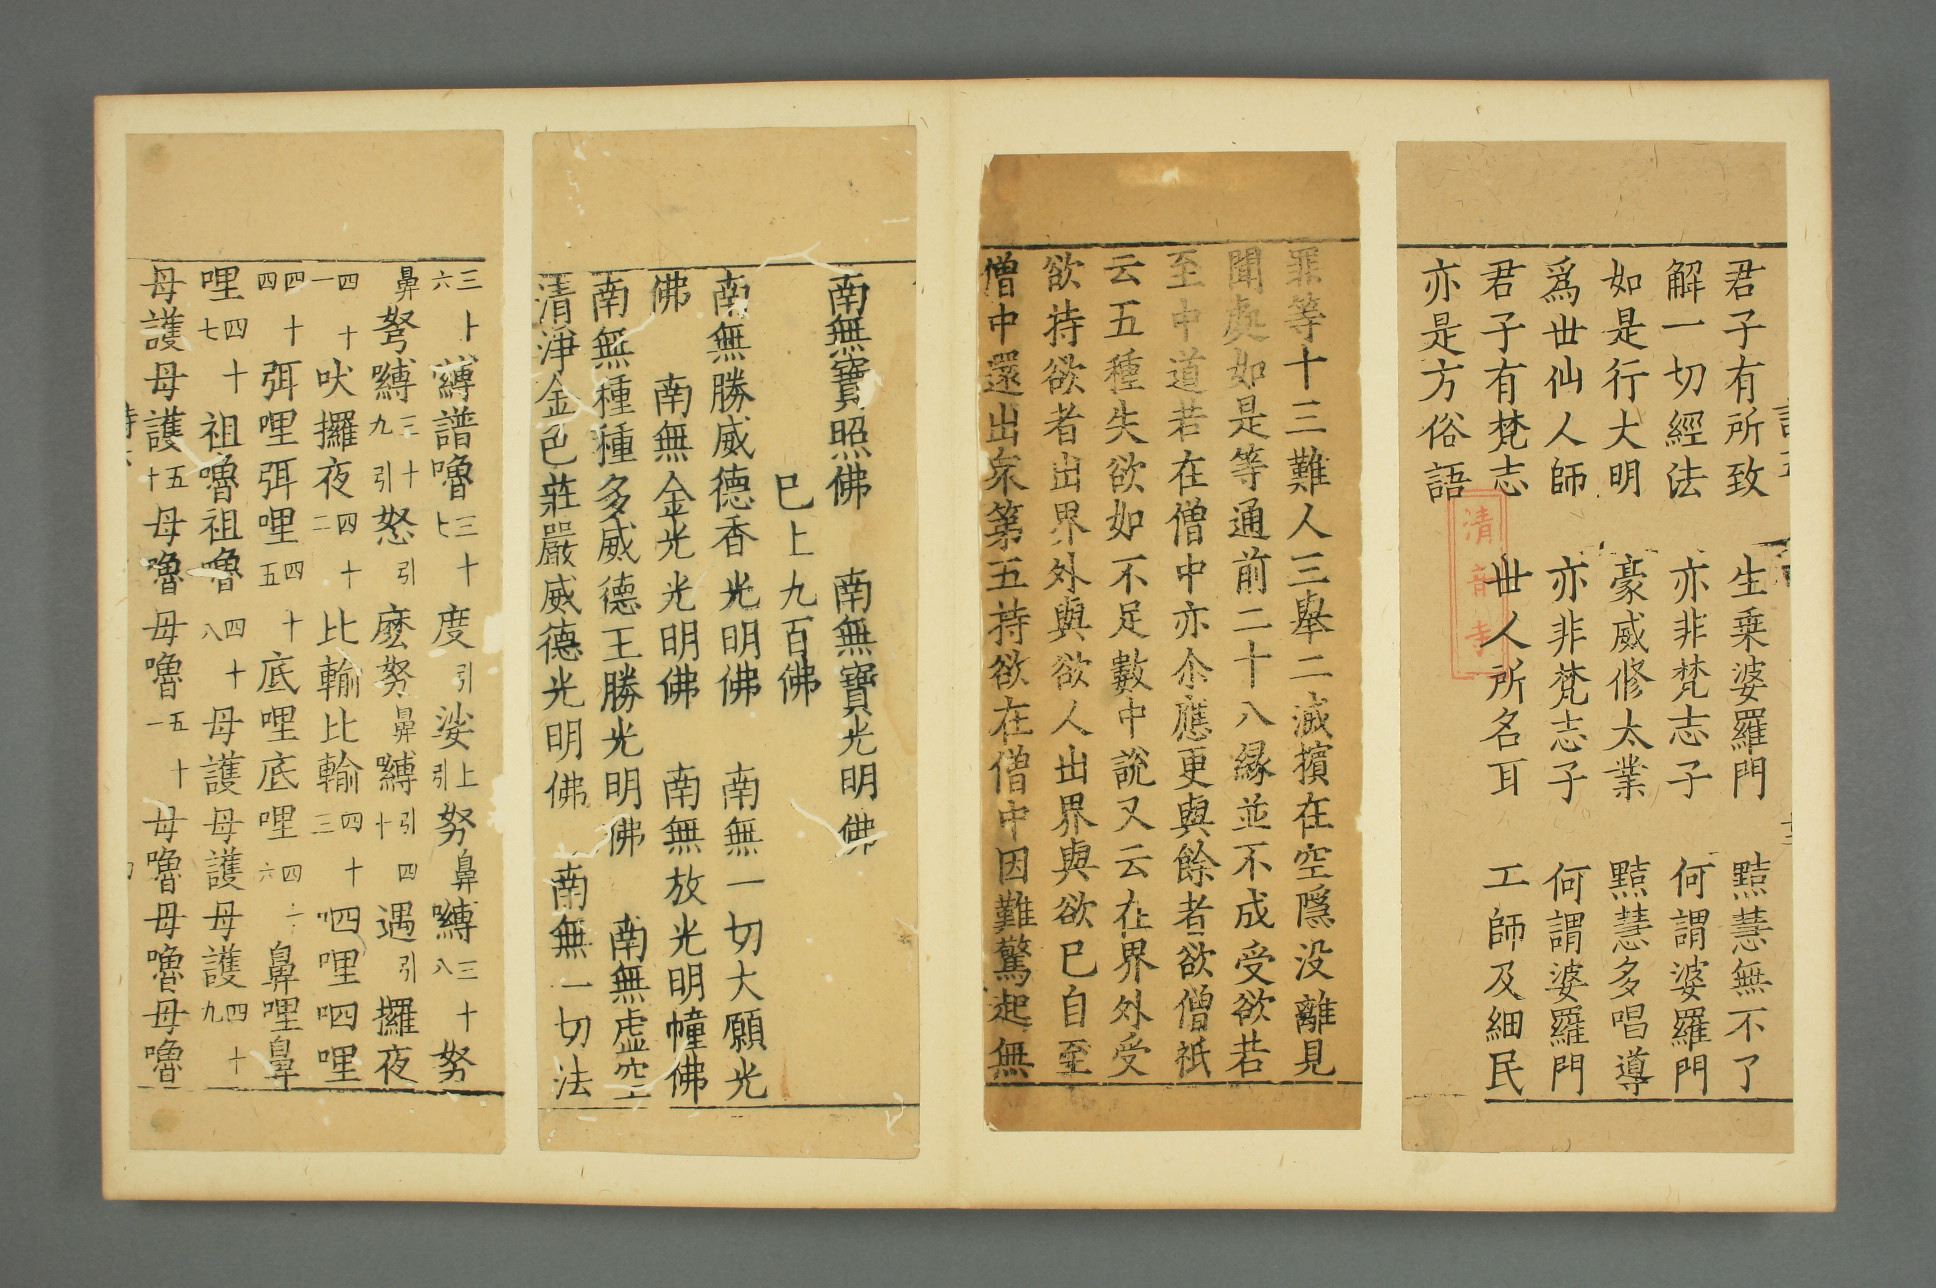 君子有所致　生乗婆羅門　黠慧無不了
解一切經法　亦非梵志子　何謂婆羅門
如是行大明　豪威修太業　黠慧多唱導
爲世仙人師　亦非梵志子　何謂婆羅門
君子有梵志　世人所名耳　工師及細民
亦是方俗語
清音寺
罪等十三難人三舉二滅擯在空隱没離見
聞處如是等通前二十八縁並不成受欲若
至中道若在僧中亦尒應更與餘者欲僧祇
云五種失欲如不足數中說又云在界外受
欲持欲者出界外與欲人出界與欲已自至
僧中還出衆第五持欲在僧中因難驚起無
南無寶照佛　南無寶光明佛
已上九百佛
南無勝威德香光明佛　南無一切大願光
佛　南無金光光明佛　南無放光明幢佛
南無種種多威德王勝光明佛　南無虚空
清淨金色莊嚴威德光明佛　南無一切法
三十六嚩譜嚕三十七度引娑上引努鼻嚩三十八努
鼻弩嚩三十九引怒引麽努鼻嚩引四十遇引攞夜
四十一吠攞夜四十二比輸比輸四十三呬哩呬哩
四十四弭哩弭哩四十五底哩底哩四十六鼻哩鼻
哩四十七祖嚕祖嚕四十八母護母護母護四十九
母護母護五十母嚕母嚕五十一母嚕母嚕母嚕